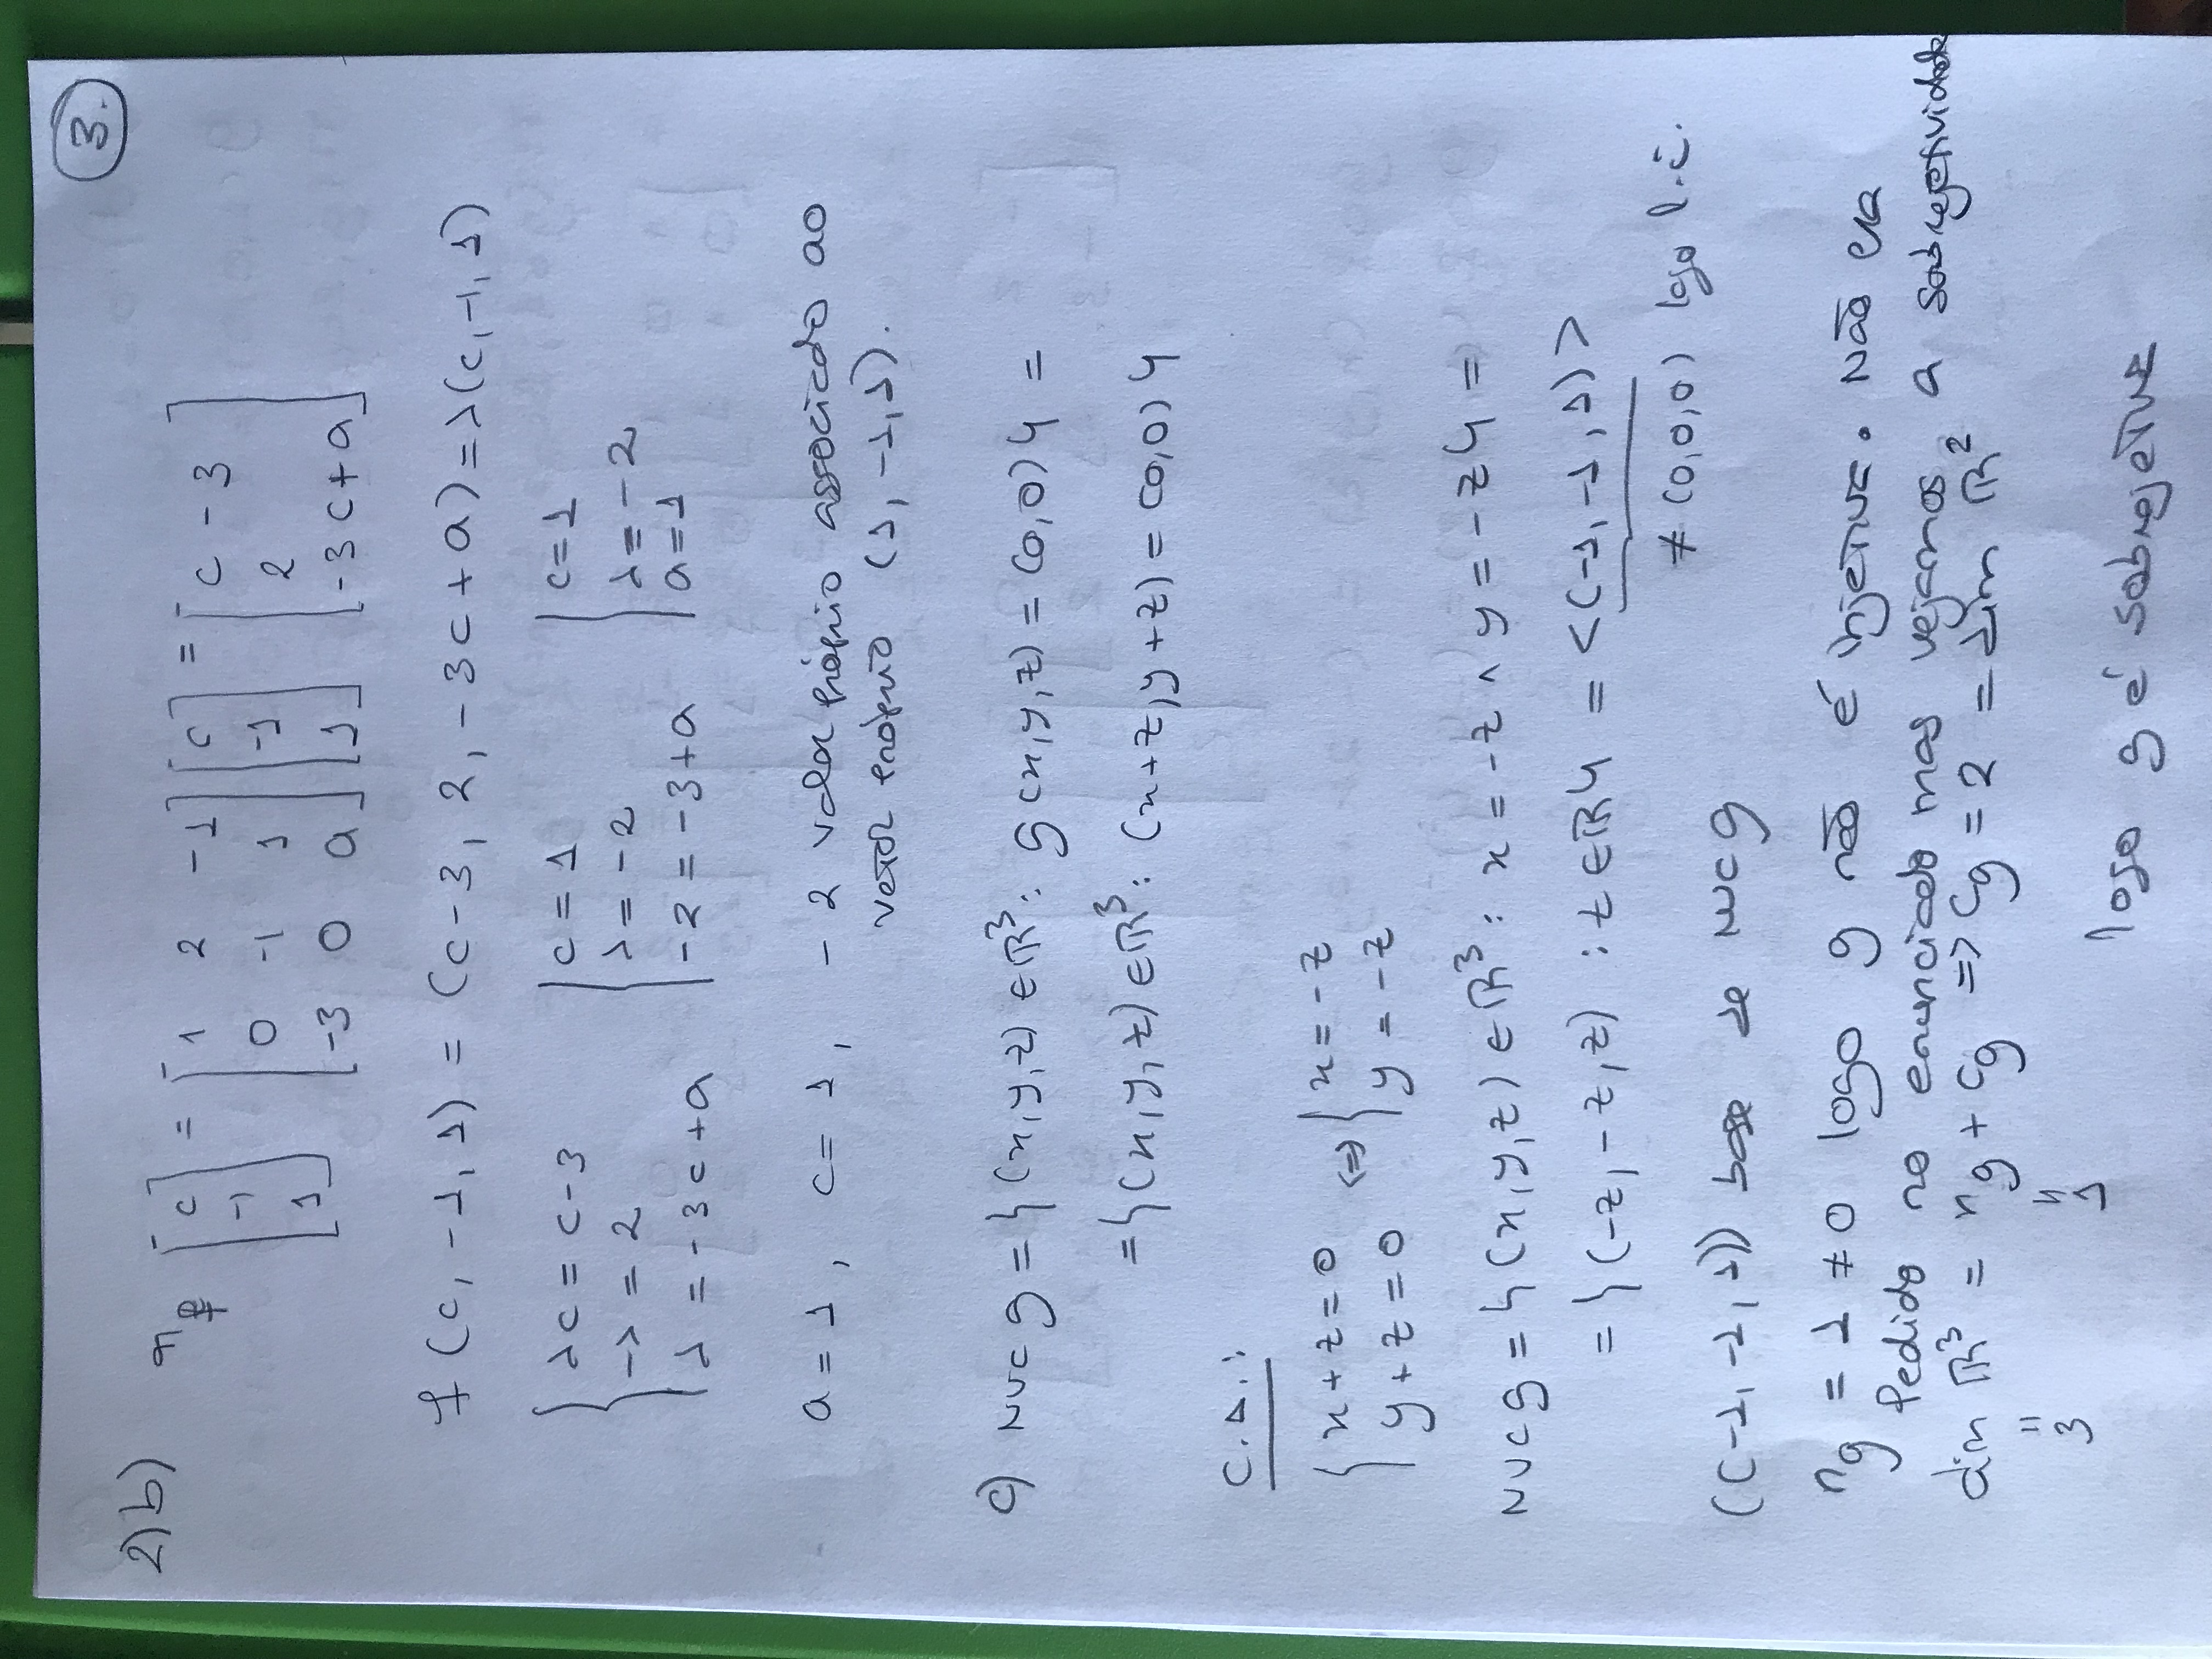 3.
2) b) M_f [c -1 1] = [1 2 -1; 0 -1 1; -3 0 a] [c -1 1] = [c - 3; 2; -3c + a]
f (c, -1, 1) = (c-3, 2, -3c + a) = λ(c, -1, 1)
{ λc = c-3 { c = 1 { c = 1
-λ = 2 λ = -2 λ = -2
λ = -3c + a -2 = -3 + a a = 1
a = 1, c = 1, -2 valor próprio associado ao
vetor próprio (1, -1, 1).
c) Nuc g = {(x,y,z) ∈ ℝ³: g(x,y,z) = (0,0)} =
= {(x,y,z) ∈ ℝ³: (x+z, y+z) = (0,0)}
C.A.:
{ x + z = 0 ⇔ { x = -z
y + z = 0 y = -z
Nuc g = {(x,y,z) ∈ ℝ³: x = -z ∧ y = -z} =
= {(-z, -z, z) : z ∈ ℝ} = <(-1, -1, 1)>
≠ (0,0,0) logo l.i.
((-1, -1, 1)) base de Nuc g
n_g = 1 ≠ 0 logo g não é injetiva. Não era
Pedido no enunciado mas vejamos a sobrejetividade
dim ℝ³ = n_g + c_g => c_g = 2 = dim ℝ²
= =
3 1
logo g é sobrejetiva